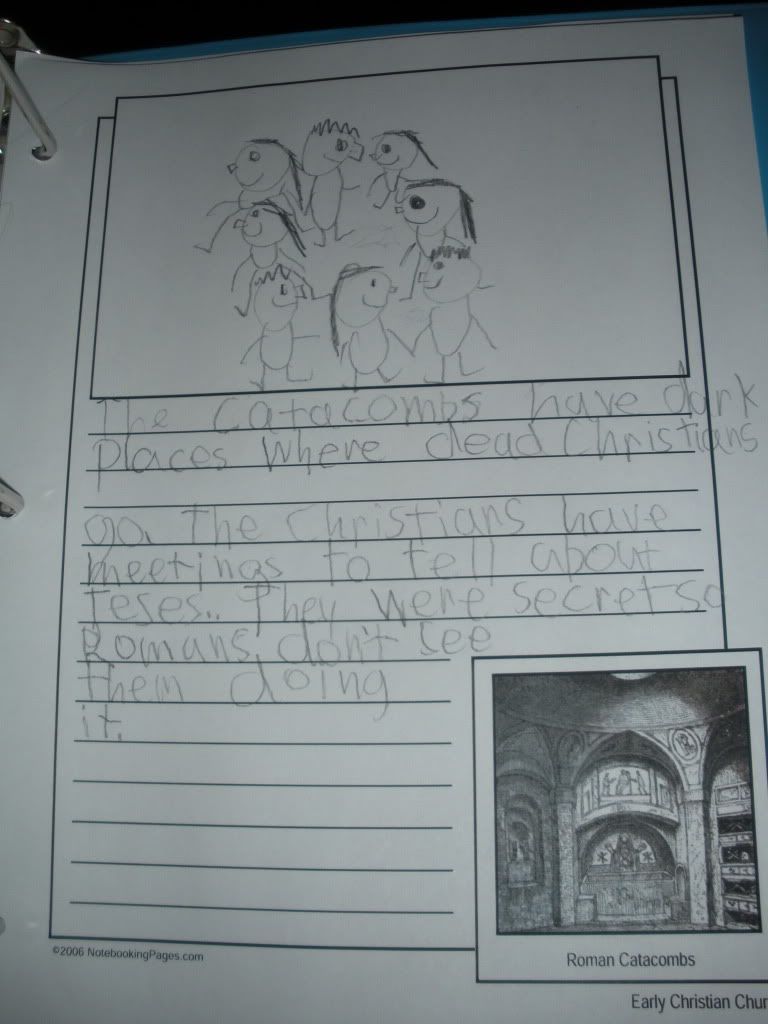 The Catacombs have dark
places where dead Christians
go. The Christians have
meetings to tell about
Jeses.. They were secret so
Romans don't see
them doing
it.
©2006 NotebookingPages.com
Roman Catacombs
Early Christian Chur